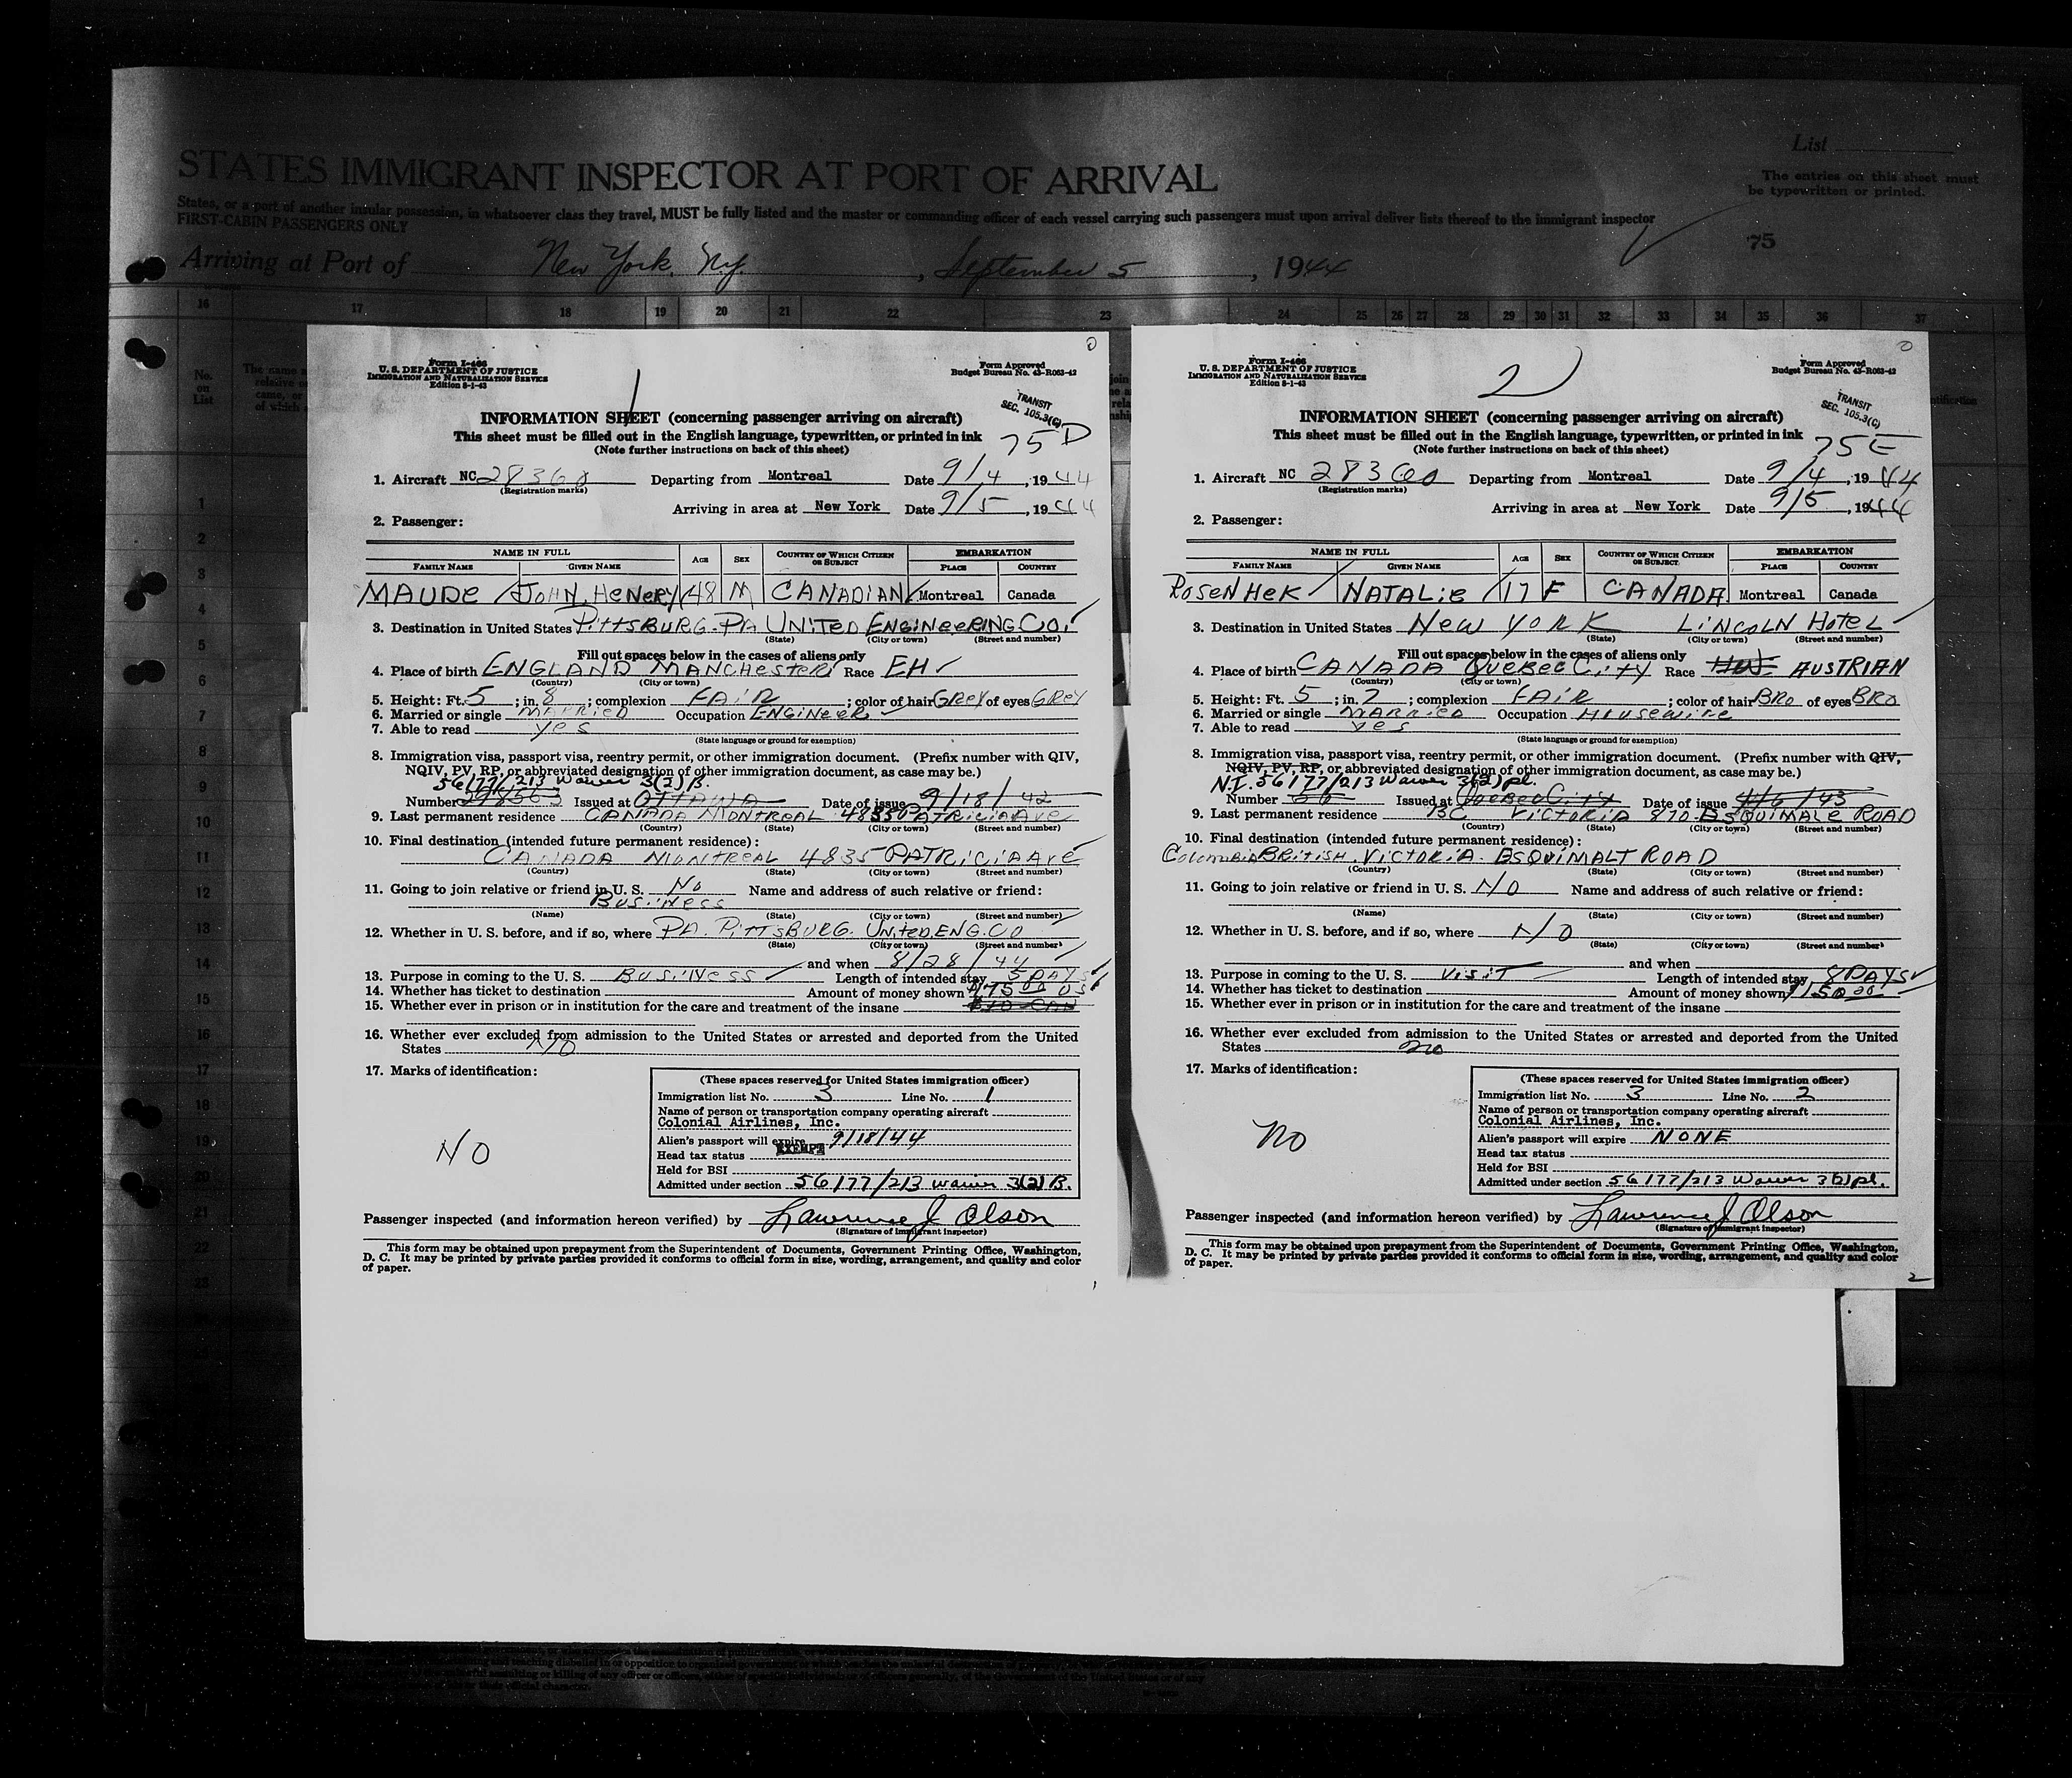 List
STATES IMMIGRANT INSPECTOR AT PORT OF ARRIVAL
The entries on this sheet must
be typewritten or printed.
States, or a port of another insular possession, in whatsoever class they travel, MUST be fully listed and the master or commanding officer of each vessel carrying such passengers must upon arrival deliver lists thereof to the immigrant inspector
FIRST-CABIN PASSENGERS ONLY
75
Arriving at Port of New York, N.Y., September 5, 1944
16 17 18 19 20 21 22 23 24 25 26 27 28 29 30 31 32 33 34 35 36 37
No.
on
List
1
2
3
4
5
6
7
8
9
10
11
12
13
14
15
16
17
18
19
20
21
22
23
1
Form I-466
U. S. DEPARTMENT OF JUSTICE
IMMIGRATION AND NATURALIZATION SERVICE
Edition 8-1-43
Form Approved
Budget Bureau No. 43-R063-42
TRANSIT
SEC. 105.3(C)
INFORMATION SHEET (concerning passenger arriving on aircraft)
75 D
This sheet must be filled out in the English language, typewritten, or printed in ink
(Note further instructions on back of this sheet)
1. Aircraft NC 28360 Departing from Montreal Date 9/4, 1944
(Registration marks)
Arriving in area at New York Date 9/5, 1944
2. Passenger:
NAME IN FULL AGE SEX COUNTRY OF WHICH CITIZEN OR SUBJECT EMBARKATION
FAMILY NAME GIVEN NAME PLACE COUNTRY
MAUDE JOHN HENERY 48 M CANADIAN Montreal Canada
3. Destination in United States PITTSBURG-PA UNITED ENGINEERING CO.
(State) (City or town) (Street and number)
Fill out spaces below in the cases of aliens only
4. Place of birth ENGLAND MANCHESTER Race EH
(Country) (City or town)
5. Height: Ft. 5; in. 8; complexion FAIR; color of hair GREY of eyes GREY
6. Married or single MARRIED Occupation ENGINEER
7. Able to read yes
(State language or ground for exemption)
8. Immigration visa, passport visa, reentry permit, or other immigration document. (Prefix number with QIV,
NQIV, PV, RP, or abbreviated designation of other immigration document, as case may be.)
56177/213 Waiver 3(2)B.
Number Issued at OTTAWA Date of issue 9/18/42
9. Last permanent residence CANADA MONTREAL PATRICIA AVE
(Country) (State) (City or town) (Street and number)
10. Final destination (intended future permanent residence):
CANADA MONTREAL 4835 PATRICIA AVE
(Country) (State) (City or town) (Street and number)
11. Going to join relative or friend in U. S. No Name and address of such relative or friend:
BUSINESS
(Name) (State) (City or town) (Street and number)
12. Whether in U. S. before, and if so, where PA. PITTSBURG. UNITED. ENG. CO
(State) (City or town) (Street and number)
and when 8/28/44
13. Purpose in coming to the U. S. BUSINESS Length of intended stay 5 DAYS
14. Whether has ticket to destination Amount of money shown $75.00 US
15. Whether ever in prison or in institution for the care and treatment of the insane $10 CAN
16. Whether ever excluded from admission to the United States or arrested and deported from the United
States NO
17. Marks of identification:
NO
(These spaces reserved for United States immigration officer)
Immigration list No. 3 Line No. 1
Name of person or transportation company operating aircraft
Colonial Airlines, Inc.
Alien's passport will expire 9/18/44
Head tax status EXEMPT
Held for BSI
Admitted under section 56177/213 waiver 3(2)B.
Passenger inspected (and information hereon verified) by Lawrence J Olson
(Signature of Immigrant Inspector)
This form may be obtained upon prepayment from the Superintendent of Documents, Government Printing Office, Washington,
D. C. It may be printed by private parties provided it conforms to official form in size, wording, arrangement, and quality and color
of paper.
2
Form I-466
U. S. DEPARTMENT OF JUSTICE
IMMIGRATION AND NATURALIZATION SERVICE
Edition 8-1-43
Form Approved
Budget Bureau No. 43-R063-42
TRANSIT
SEC. 105.3(C)
INFORMATION SHEET (concerning passenger arriving on aircraft)
75 E
This sheet must be filled out in the English language, typewritten, or printed in ink
(Note further instructions on back of this sheet)
1. Aircraft NC 28360 Departing from Montreal Date 9/4, 1944
(Registration marks)
Arriving in area at New York Date 9/5, 1944
2. Passenger:
NAME IN FULL AGE SEX COUNTRY OF WHICH CITIZEN OR SUBJECT EMBARKATION
FAMILY NAME GIVEN NAME PLACE COUNTRY
ROSENHEK NATALIE 17 F CANADA Montreal Canada
3. Destination in United States NEW YORK LINCOLN HOTEL
(State) (City or town) (Street and number)
Fill out spaces below in the cases of aliens only
4. Place of birth CANADA QUEBEC CITY Race AUSTRIAN
(Country) (City or town)
5. Height: Ft. 5; in. 7; complexion FAIR; color of hair BRO of eyes BRO
6. Married or single MARRIED Occupation HOUSEWIFE
7. Able to read yes
(State language or ground for exemption)
8. Immigration visa, passport visa, reentry permit, or other immigration document. (Prefix number with QIV,
NQIV, PV, RP, or abbreviated designation of other immigration document, as case may be.)
N.I. 56177/213 Waiver 3(2)pl.
Number Issued at QUEBEC CITY Date of issue 4/6/43
9. Last permanent residence BC VICTORIA 870 ESQUIMALE ROAD
(Country) (State) (City or town) (Street and number)
10. Final destination (intended future permanent residence):
COLUMBIA BRITISH. VICTORIA. ESQUIMALT ROAD
(Country) (State) (City or town) (Street and number)
11. Going to join relative or friend in U. S. NO Name and address of such relative or friend:
(Name) (State) (City or town) (Street and number)
12. Whether in U. S. before, and if so, where NO
(State) (City or town) (Street and number)
and when
13. Purpose in coming to the U. S. VISIT Length of intended stay 8 DAYS
14. Whether has ticket to destination Amount of money shown $150.00
15. Whether ever in prison or in institution for the care and treatment of the insane
16. Whether ever excluded from admission to the United States or arrested and deported from the United
States no
17. Marks of identification:
no
(These spaces reserved for United States immigration officer)
Immigration list No. 3 Line No. 2
Name of person or transportation company operating aircraft
Colonial Airlines, Inc.
Alien's passport will expire NONE
Head tax status
Held for BSI
Admitted under section 56177/213 Waiver 3(2)pl.
Passenger inspected (and information hereon verified) by Lawrence J Olson
(Signature of Immigrant Inspector)
This form may be obtained upon prepayment from the Superintendent of Documents, Government Printing Office, Washington,
D. C. It may be printed by private parties provided it conforms to official form in size, wording, arrangement, and quality and color
of paper.
2